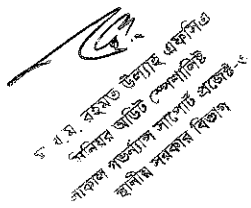 রহমত উল্যাহ্ এফসিএ
সিনিয়র অডিট স্পেশালিষ্ট
লোকাল গভর্ন্যান্স সাপোর্ট প্রজেক্ট-৩
স্থানীয় সরকার বিভাগ